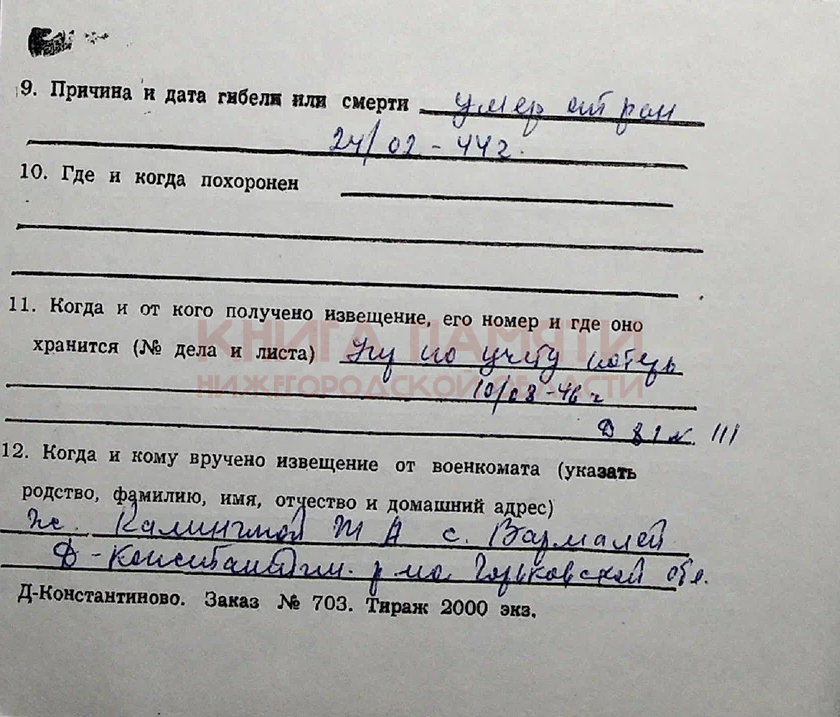 9. Причина и дата гибели или смерти умер от ран
24/02-44 г.
10. Где и когда похоронен
11. Когда и от кого получено извещение, его номер и где оно
КНИГА ПАМЯТИ
хранится (№ дела и листа) по учету потерь
НИЖЕГОРОДСКОЙ ОБЛАСТИ
10/08-46 г
12. Когда и кому вручено извещение от военкомата (указать
родство, фамилию, имя, отчество и домашний адрес)
с. Вармалей
Горьковской обл.
Д-Константиново. Заказ № 703. Тираж 2000 экз.